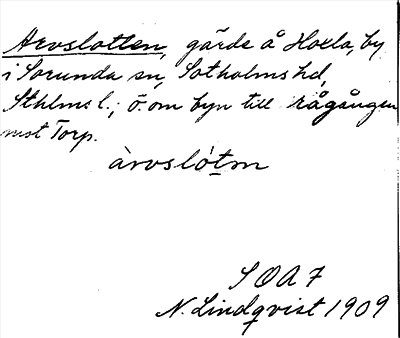 Arvslotten, gärde å Hoxla, by
i Sorunda sn, Sotholms hd,
Sthlms l., ö. om byn till rågången
mot Torp.
àrvslótm
SOA 7
N. Lindqvist 1909